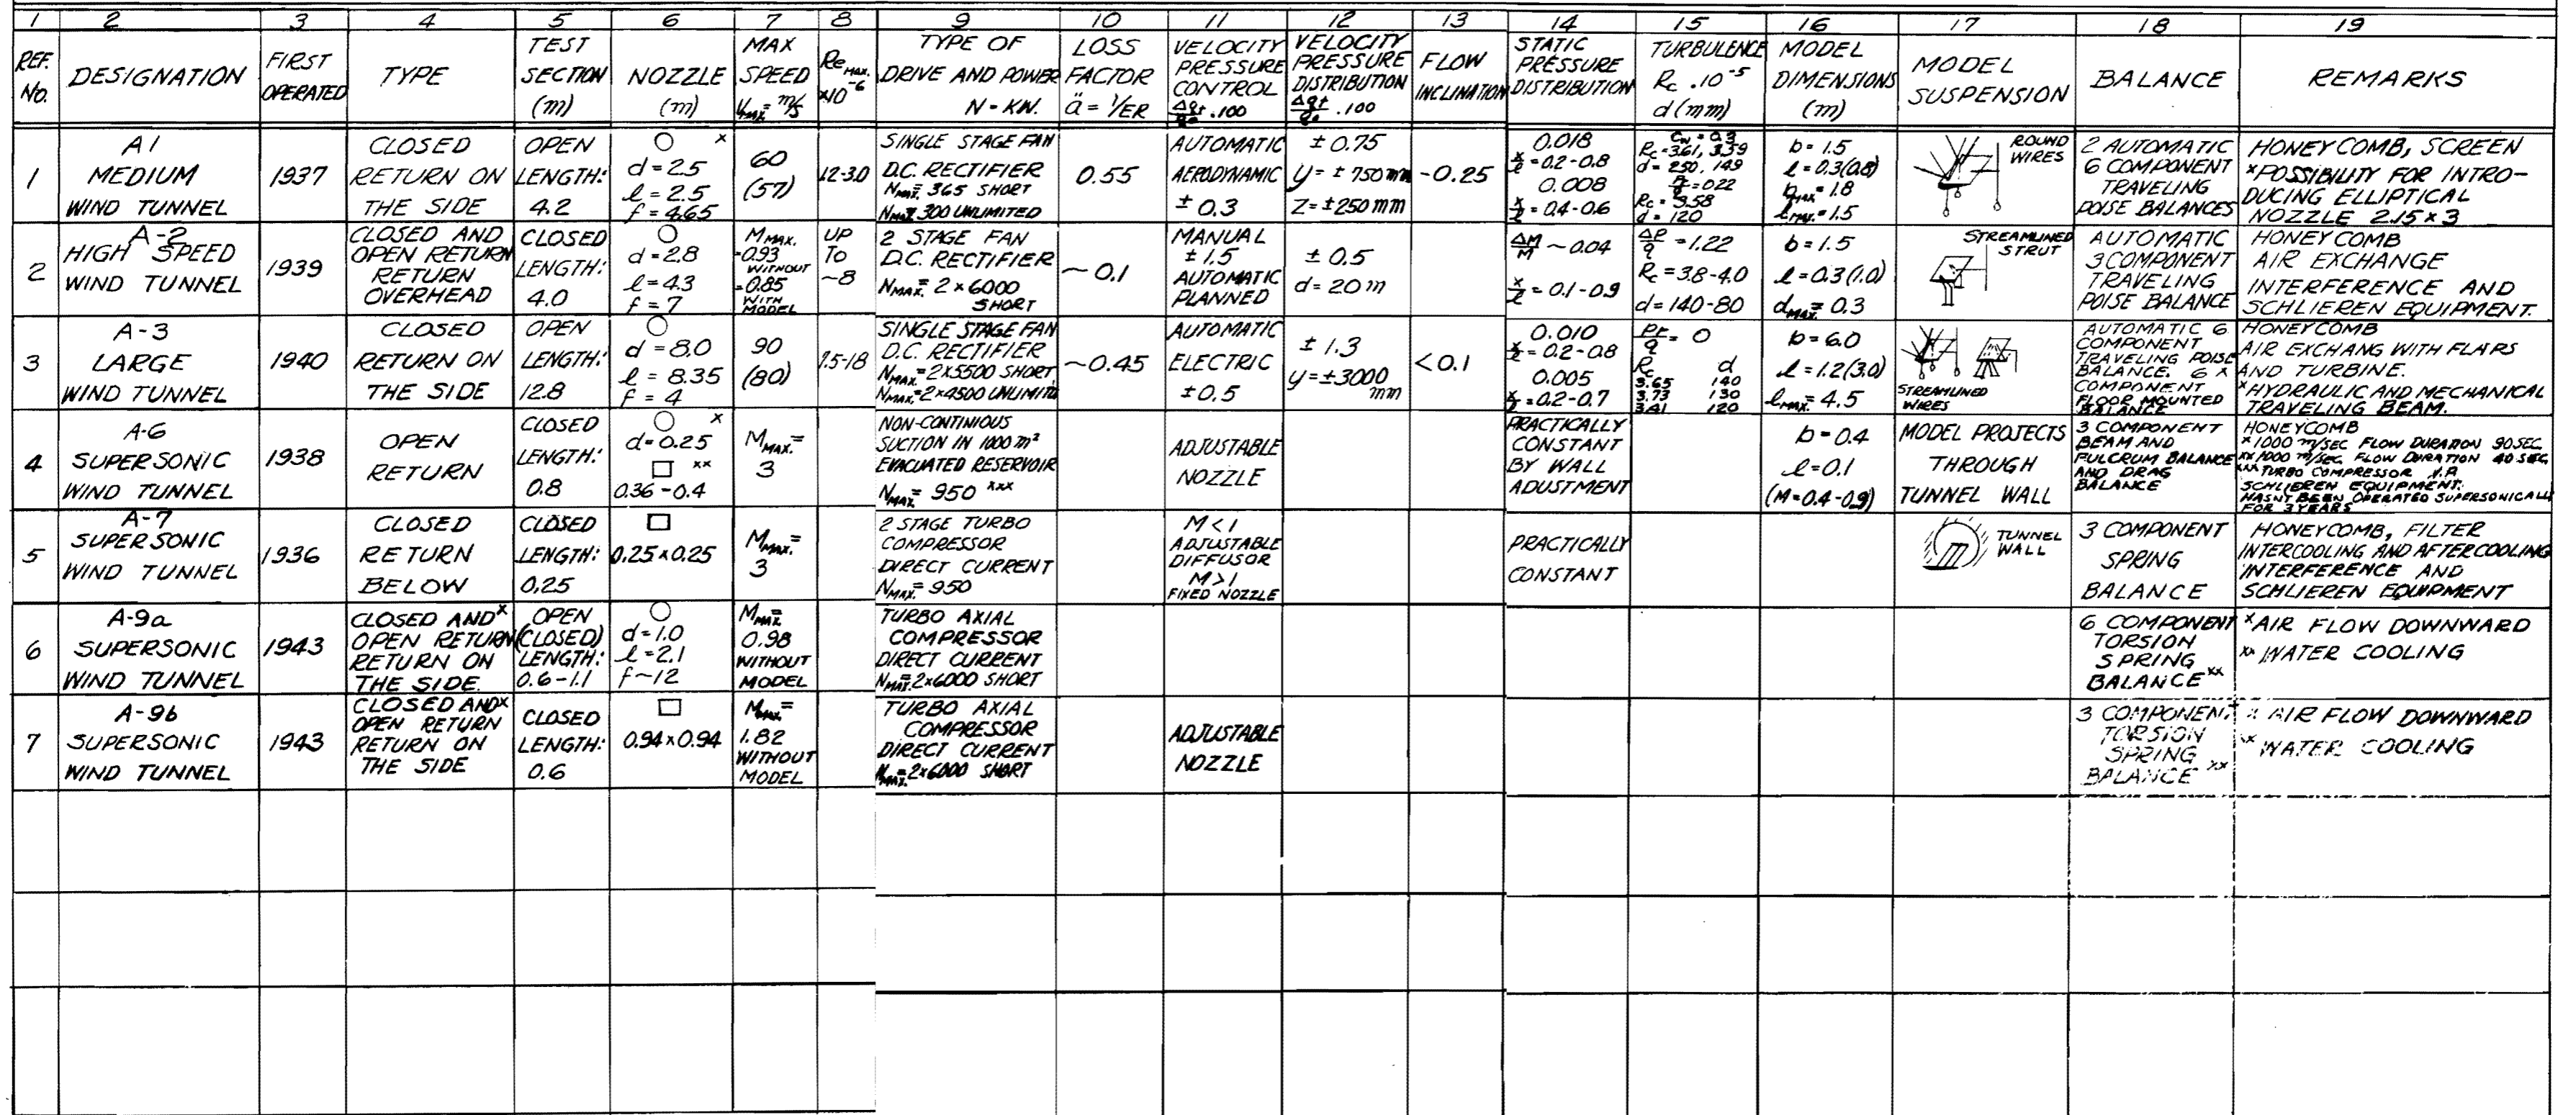 1 2 3 4 5 6 7 8 9 10 11 12 13 14 15 16 17 18 19
REF. No.
DESIGNATION
FIRST
OPERATED
TYPE
TEST
SECTION
(m)
NOZZLE
(m)
MAX
SPEED
Vmax = m/s
Re MAX.
×10⁻⁶
TYPE OF
DRIVE AND POWER
N = KW.
LOSS
FACTOR
ä = 1/ER
VELOCITY
PRESSURE
CONTROL
.100
VELOCITY
PRESSURE
DISTRIBUTION
.100
FLOW
INCLINATION
STATIC
PRESSURE
DISTRIBUTION
TURBULENCE
Rc .10⁻⁵
d (mm)
MODEL
DIMENSIONS
(m)
MODEL
SUSPENSION
BALANCE
REMARKS
1
A1
MEDIUM
WIND TUNNEL
1937
CLOSED
RETURN ON
THE SIDE
OPEN
LENGTH:
4.2
○ x
d = 2.5
l = 2.5
f = 4.65
60
(57)
1.2-3.0
SINGLE STAGE FAN
D.C. RECTIFIER
NMAX. = 365 SHORT
NMAX = 300 UNLIMITED
0.55
AUTOMATIC
AERODYNAMIC
± 0.3
± 0.75
y = ± 750 mm
Z = ± 250 mm
-0.25
0.018
x/l = 0.2-0.8
0.008
x/l = 0.4-0.6
Cw = 0.3
Rc = 3.61, 3.39
d = 250, 149
= 022
Rc = 3.58
d = 120
b = 1.5
l = 0.3(0.8)
bmax = 1.8
lmax. = 1.5
ROUND
WIRES
2 AUTOMATIC
6 COMPONENT
TRAVELING
POISE BALANCES
HONEYCOMB, SCREEN
x POSSIBILITY FOR INTRO-
DUCING ELLIPTICAL
NOZZLE 2.15 × 3
2
A-2
HIGH SPEED
WIND TUNNEL
1939
CLOSED AND
OPEN RETURN
RETURN
OVERHEAD
CLOSED
LENGTH:
4.0
○
d = 2.8
l = 4.3
f = 7
MMAX.
=0.93
WITHOUT
=0.85
WITH
MODEL
UP
TO
~8
2 STAGE FAN
D.C. RECTIFIER
NMAX. = 2 × 6000
SHORT
~ 0.1
MANUAL
± 1.5
AUTOMATIC
PLANNED
± 0.5
d = 20 m
ΔM/M ~ 0.04
x/l = 0.1-0.9
ΔP/q = 1.22
Rc = 3.8-4.0
d = 140-80
b = 1.5
l = 0.3(1.0)
dMAX. = 0.3
STREAMLINED
STRUT
AUTOMATIC
3 COMPONENT
TRAVELING
POISE BALANCE
HONEYCOMB
AIR EXCHANGE
INTERFERENCE AND
SCHLIEREN EQUIPMENT.
3
A-3
LARGE
WIND TUNNEL
1940
CLOSED
RETURN ON
THE SIDE
OPEN
LENGTH:
12.8
○
d = 8.0
l = 8.35
f = 4
90
(80)
7.5-18
SINGLE STAGE FAN
D.C. RECTIFIER
NMAX. = 2×5500 SHORT
NMAX. = 2×4500 UNLIMITED
~0.45
AUTOMATIC
ELECTRIC
± 0.5
± 1.3
y = ±3000
mm
< 0.1
0.010
x/l = 0.2-0.8
0.005
x/l = 0.2-0.7
= 0
Rc d
3.65 140
3.73 130
3.A1 120
b = 6.0
l = 1.2(3.0)
lMAX. = 4.5
STREAMLINED
WIRES
AUTOMATIC 6
COMPONENT
TRAVELING POISE
BALANCE. 6 x
COMPONENT
FLOOR MOUNTED
BALANCE
HONEYCOMB
AIR EXCHANG WITH FLAPS
AND TURBINE.
x HYDRAULIC AND MECHANICAL
TRAVELING BEAM.
4
A-6
SUPERSONIC
WIND TUNNEL
1938
OPEN
RETURN
CLOSED
LENGTH:
0.8
○ x
d = 0.25
□ xx
0.36 - 0.4
MMAX. =
3
NON-CONTINIOUS
SUCTION IN 1000 m²
EVACUATED RESERVOIR
NMAX = 950 xxx
ADJUSTABLE
NOZZLE
PRACTICALLY
CONSTANT
BY WALL
ADUSTMENT
b = 0.4
l = 0.1
(M = 0.4-0.9)
MODEL PROJECTS
THROUGH
TUNNEL WALL
3 COMPONENT
BEAM AND
FULCRUM BALANCE
AND DRAG
BALANCE
HONEYCOMB
x 1000 m/SEC FLOW DURATION 90 SEC
xx 1000 m/SEC. FLOW DURATION 40 SEC
xxx TURBO COMPRESSOR
SCHLIEREN EQUIPMENT.
HASNT BEEN OPERATED SUPERSONICALLY
FOR 3 YEARS
5
A-7
SUPERSONIC
WIND TUNNEL
1936
CLOSED
RETURN
BELOW
CLOSED
LENGTH:
0.25
□
0.25 × 0.25
MMAX. =
3
2 STAGE TURBO
COMPRESSOR
DIRECT CURRENT
NMAX. = 950
M < 1
ADJUSTABLE
DIFFUSOR
M > 1
FIXED NOZZLE
PRACTICALLY
CONSTANT
TUNNEL
WALL
3 COMPONENT
SPRING
BALANCE
HONEYCOMB, FILTER
INTERCOOLING AND AFTERCOOLING
INTERFERENCE AND
SCHLIEREN EQUIPMENT
6
A-9a
SUPERSONIC
WIND TUNNEL
1943
CLOSED AND x
OPEN RETURN
RETURN ON
THE SIDE.
OPEN
(CLOSED)
LENGTH:
0.6-1.1
○
d = 1.0
l = 2.1
f ~ 12
MMAX =
0.98
WITHOUT
MODEL
TURBO AXIAL
COMPRESSOR
DIRECT CURRENT
NMAX. = 2×6000 SHORT
6 COMPONENT
TORSION
SPRING
BALANCE xx
x AIR FLOW DOWNWARD
xx WATER COOLING
7
A-9b
SUPERSONIC
WIND TUNNEL
1943
CLOSED AND x
OPEN RETURN
RETURN ON
THE SIDE
CLOSED
LENGTH:
0.6
□
0.94 × 0.94
MMAX. =
1.82
WITHOUT
MODEL
TURBO AXIAL
COMPRESSOR
DIRECT CURRENT
NMAX. = 2×6000 SHORT
ADJUSTABLE
NOZZLE
3 COMPONENT
TORSION
SPRING
BALANCE xx
x AIR FLOW DOWNWARD
xx WATER COOLING